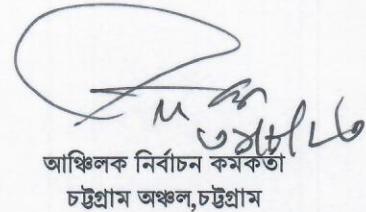 আঞ্চিলক নির্বাচন কর্মকর্তা
চট্টগ্রাম অঞ্চল,চট্টগ্রাম